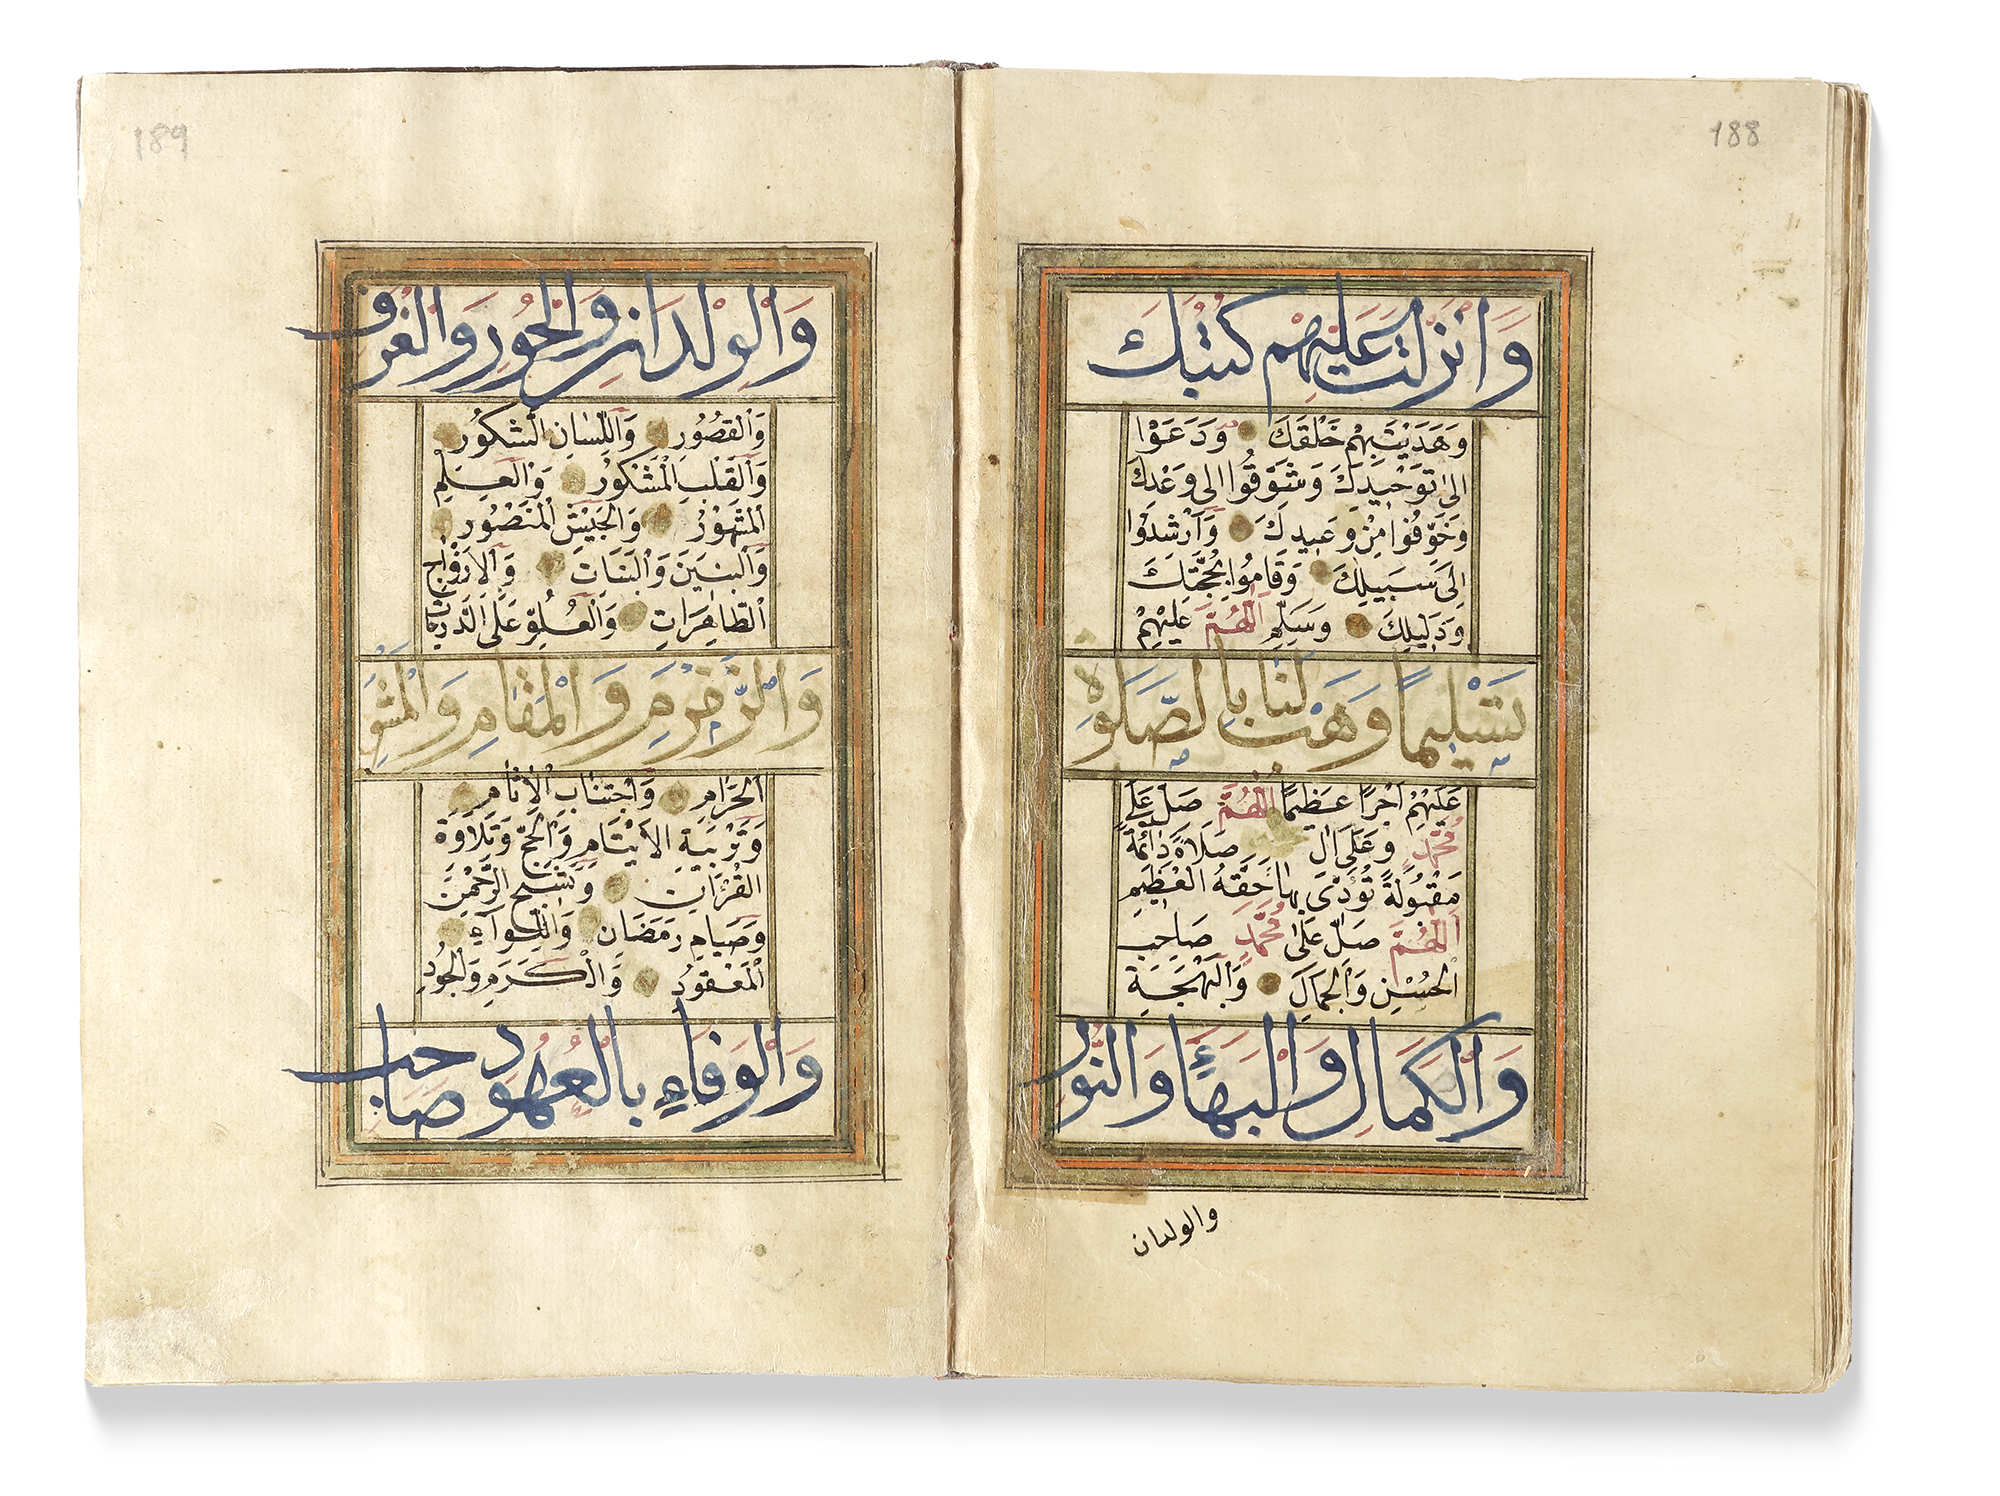 188
وَاَنْزَلْتَ عَلَيْهِمْ كُتُبَكَ
وَهَدَيْتَ بِهِمْ خَلْقَكَ وَدَعَوْا
اِلىٰ تَوْحِيدِكَ وَشَوَّقُوا اِلىٰ وَعْدِكَ
وَخَوَّفُوا مِنْ وَعِيدِكَ وَاَرْشَدُوا
اِلىٰ سَبِيلِكَ وَقَامُوا بِحُجَّتِكَ
وَدَلِيلِكَ وَسَلِّمِ اللّٰهُمَّ عَلَيْهِمْ
تَسْلِيمًا وَهَبْ لَنَا بِالصَّلَوٰةِ
عَلَيْهِمْ اَجْرًا عَظِيمًا اَللّٰهُمَّ صَلِّ عَلىٰ
مُحَمَّدٍ وَعَلىٰ اٰلِ صَلَاةً دَائِمَةً
مَقْبُولَةً تُؤَدّٰى بِهَا حَقَّهُ الْعَظِيمَ
اَللّٰهُمَّ صَلِّ عَلىٰ مُحَمَّدٍ صَاحِبِ
الْحُسْنِ وَالْجَمَالِ وَالْبَهْجَةِ
وَالْكَمَالِ وَالْبَهَاءِ وَالنُّورِ
والولدان
189
وَالْوِلْدَانِ وَالْحُورِ وَالْغُرَفِ
وَالْقُصُورِ وَاللِّسَانِ الشَّكُورِ
وَالْقَلْبِ الْمَشْكُورِ وَالْعِلْمِ
الْمَشْهُورِ وَالْجَيْشِ الْمَنْصُورِ
وَالْبَنِينَ وَالْبَنَاتِ وَالْاَزْوَاجِ
الطَّاهِرَاتِ وَالْعُلُوِّ عَلَى الدَّرَجَاتِ
وَالزَّمْزَمِ وَالْمَقَامِ وَالْمَشْعَرِ
الْحَرَامِ وَاجْتِنَابِ الْاٰثَامِ
وَتَرْبِيَةِ الْاَيْتَامِ وَالْحَجِّ وَتِلَاوَةِ
الْقُرْاٰنِ وَتَسْبِيحِ الرَّحْمٰنِ
وَصِيَامِ رَمَضَانَ وَاللِّوَآءِ
الْمَعْقُودِ وَالْكَرَمِ وَالْجُودِ
وَالْوَفَاءِ بِالْعُهُودِ صَاحِبِ